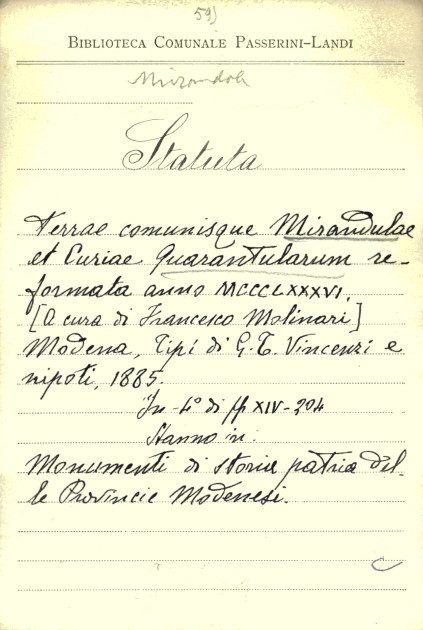 59)
BIBLIOTECA COMUNALE PASSERINI-LANDI
Mirandola
Statuta
terrae comunisque Mirandulae
et Curiae Quarantularum re-
formata anno MCCCLXXXVI.
[A cura di Francesco Molinari]
Modena, Tipi di G. T. Vincenzi e
nipoti, 1885.
In-4° di pp XIV-204
Stanno in:
Monumenti di storia patria del-
le Provincie Modenesi.